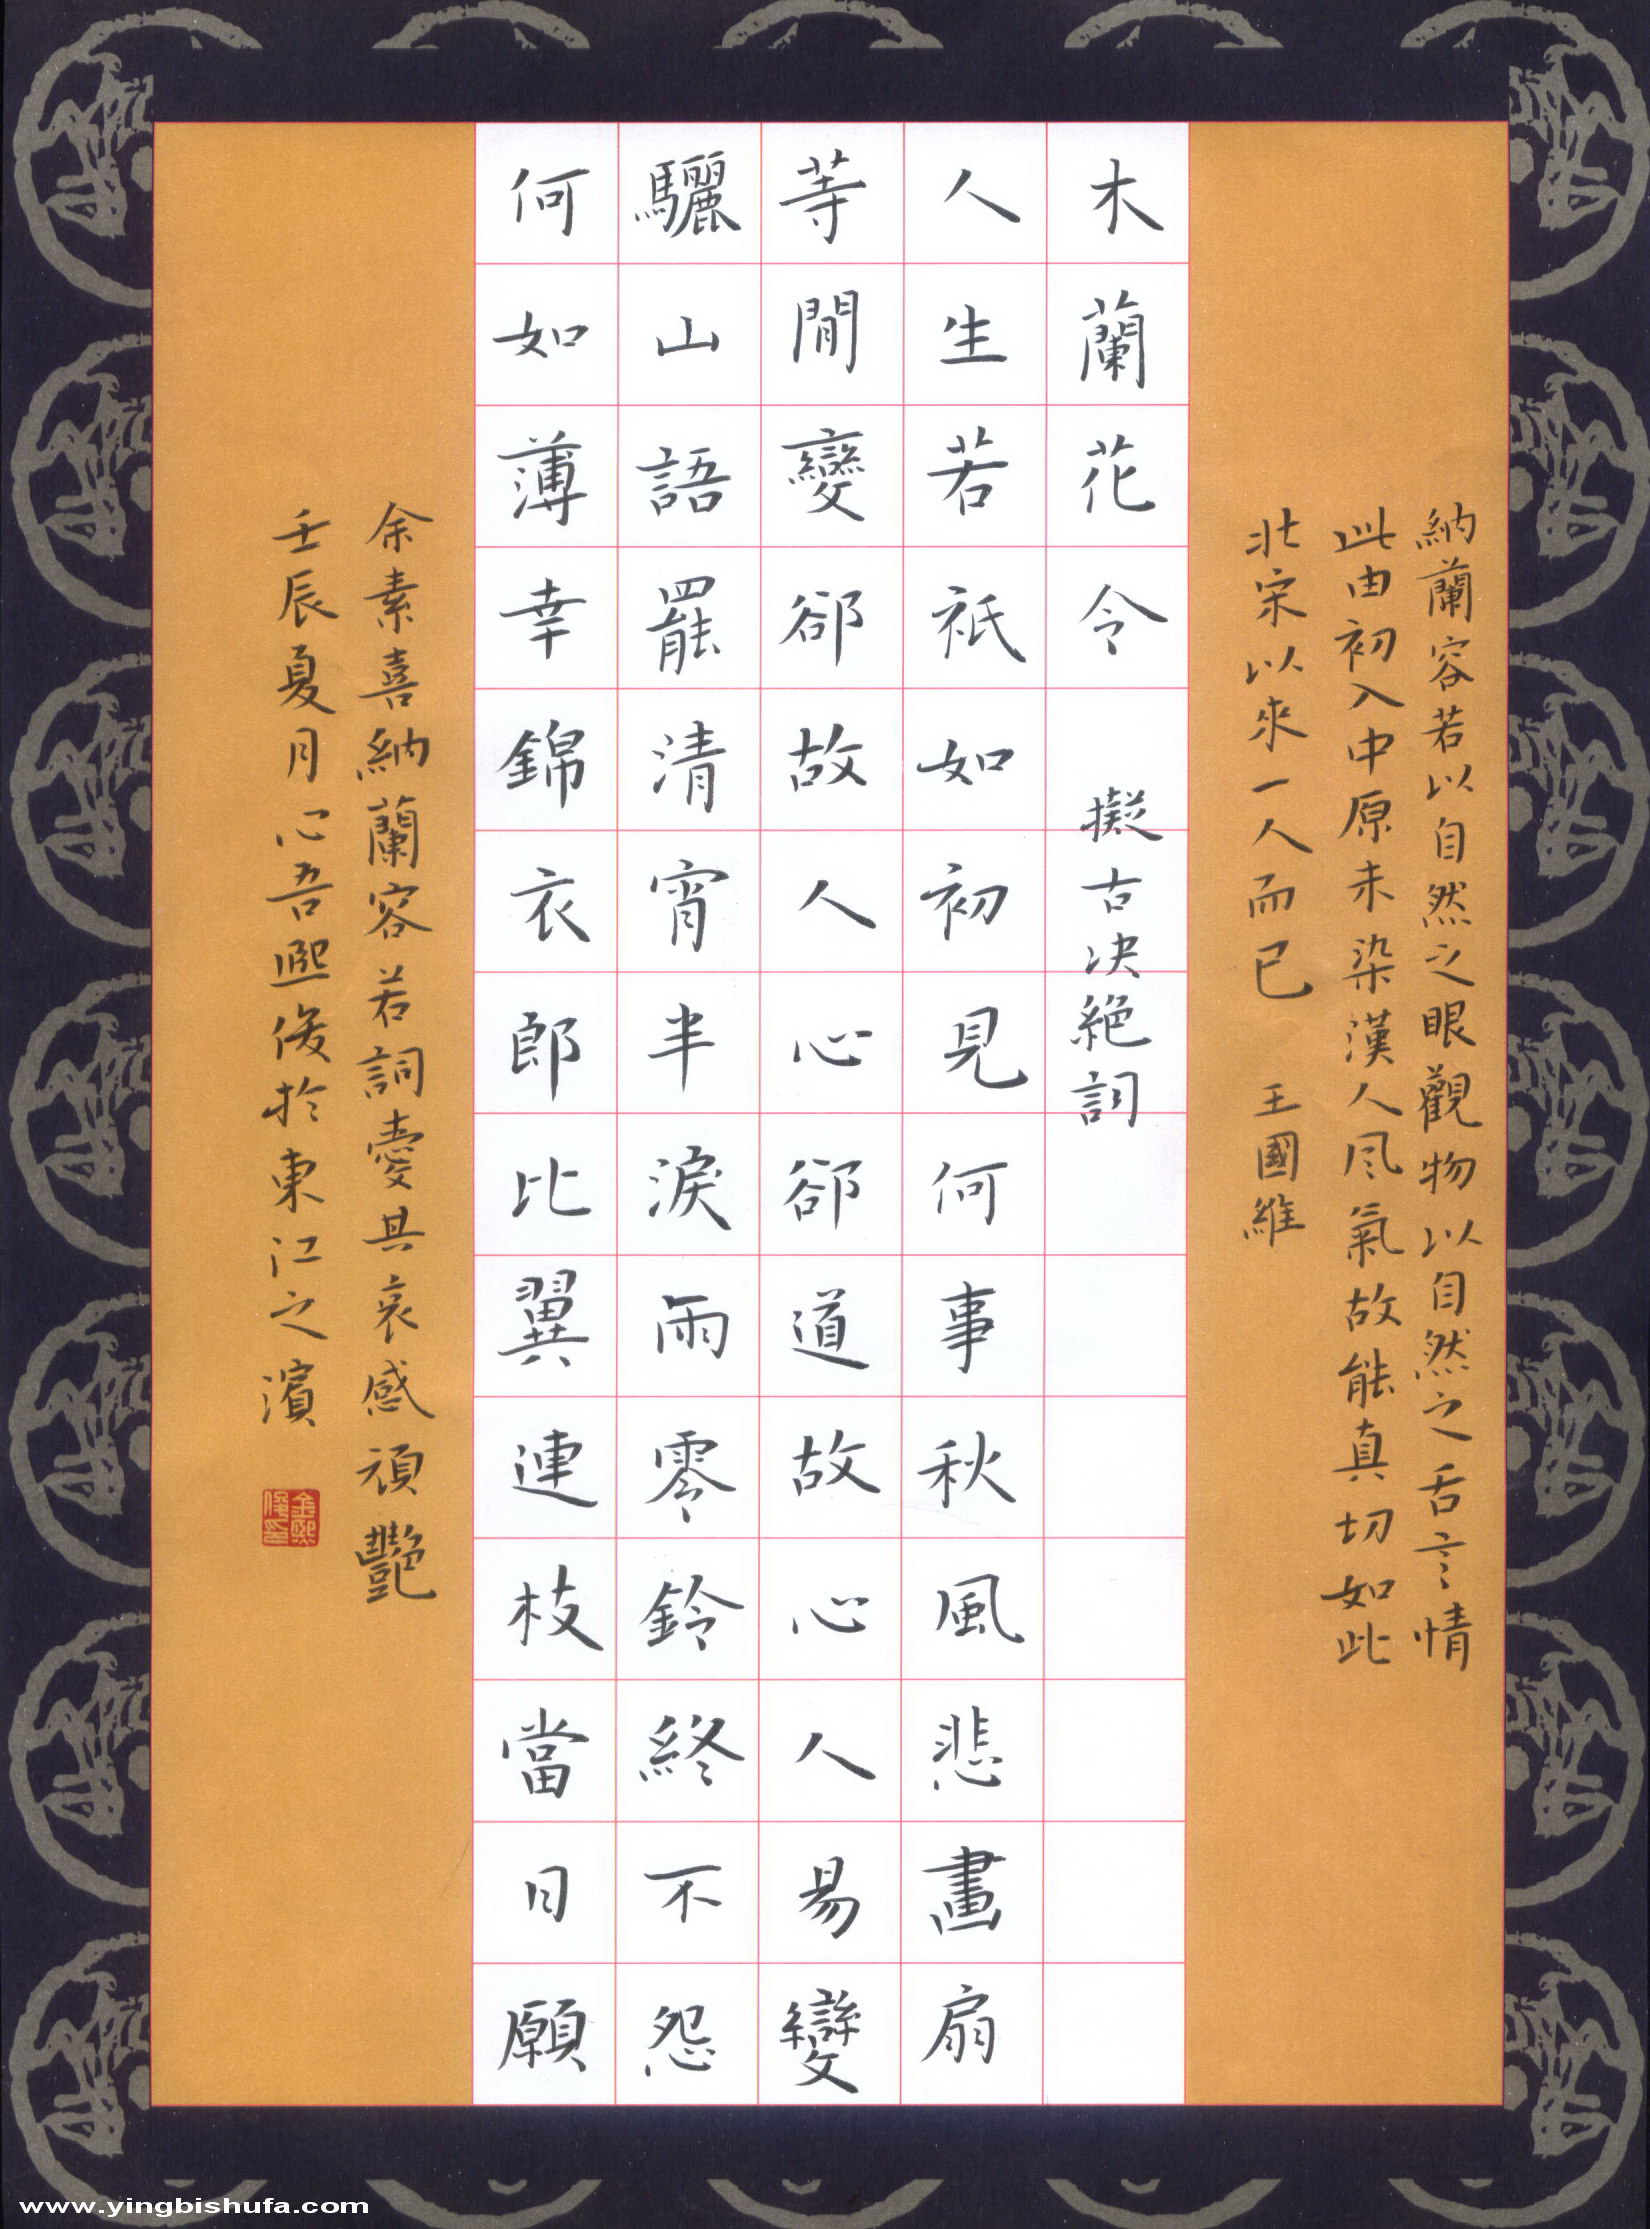 納蘭容若以自然之眼觀物以自然之舌言情
此由初入中原未染漢人风氣故能真切如此
北宋以來一人而已 王國維
木蘭花令 擬古决絕詞
人生若祇如初見何事秋風悲畫扇
等閒變郤故人心郤道故人心易變
驪山語罷清宵半淚雨零鈴終不怨
何如薄幸錦衣郎比翼連枝當日願
余素喜納蘭容若詞愛其哀感頑艷
壬辰夏月心吾熙俊於東江之濱
金熙俊印
www.yingbishufa.com